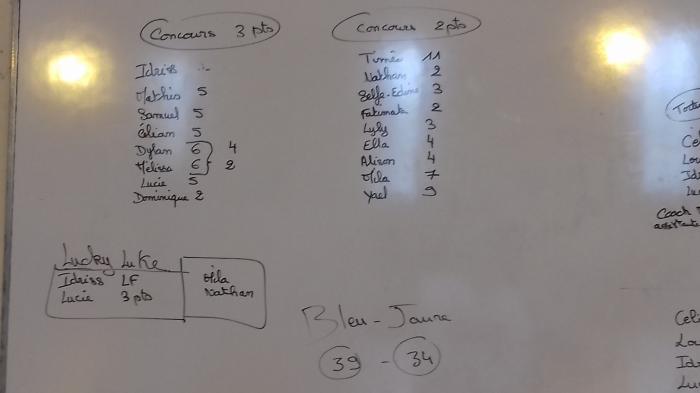 Concours 3 pts
Idriss
Mathis 5
Samuel 5
Célian 5
Dylan 6 4
Mélissa 6 2
Lucie 5
Dominique 2
Concours 2 pts
Timéo 11
Nathan 2
Seife-Edine 3
Fatumata 2
Lyly 3
Ella 4
Alison 4
Mila 7
Yael 9
Lucky Luke
Idriss LF
Lucie 3 pts
Mila
Nathan
Bleu - Jaune
39 - 34
Coach